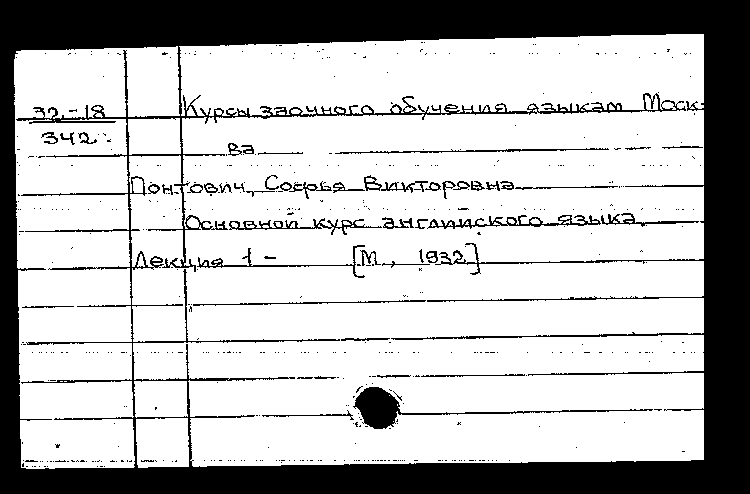 32-18
342
Курсы заочного обучения языкам Моск-
ва
Понтович, Софья Викторовна
Основной курс английского языка.
Лекция 1 - [М., 1932]